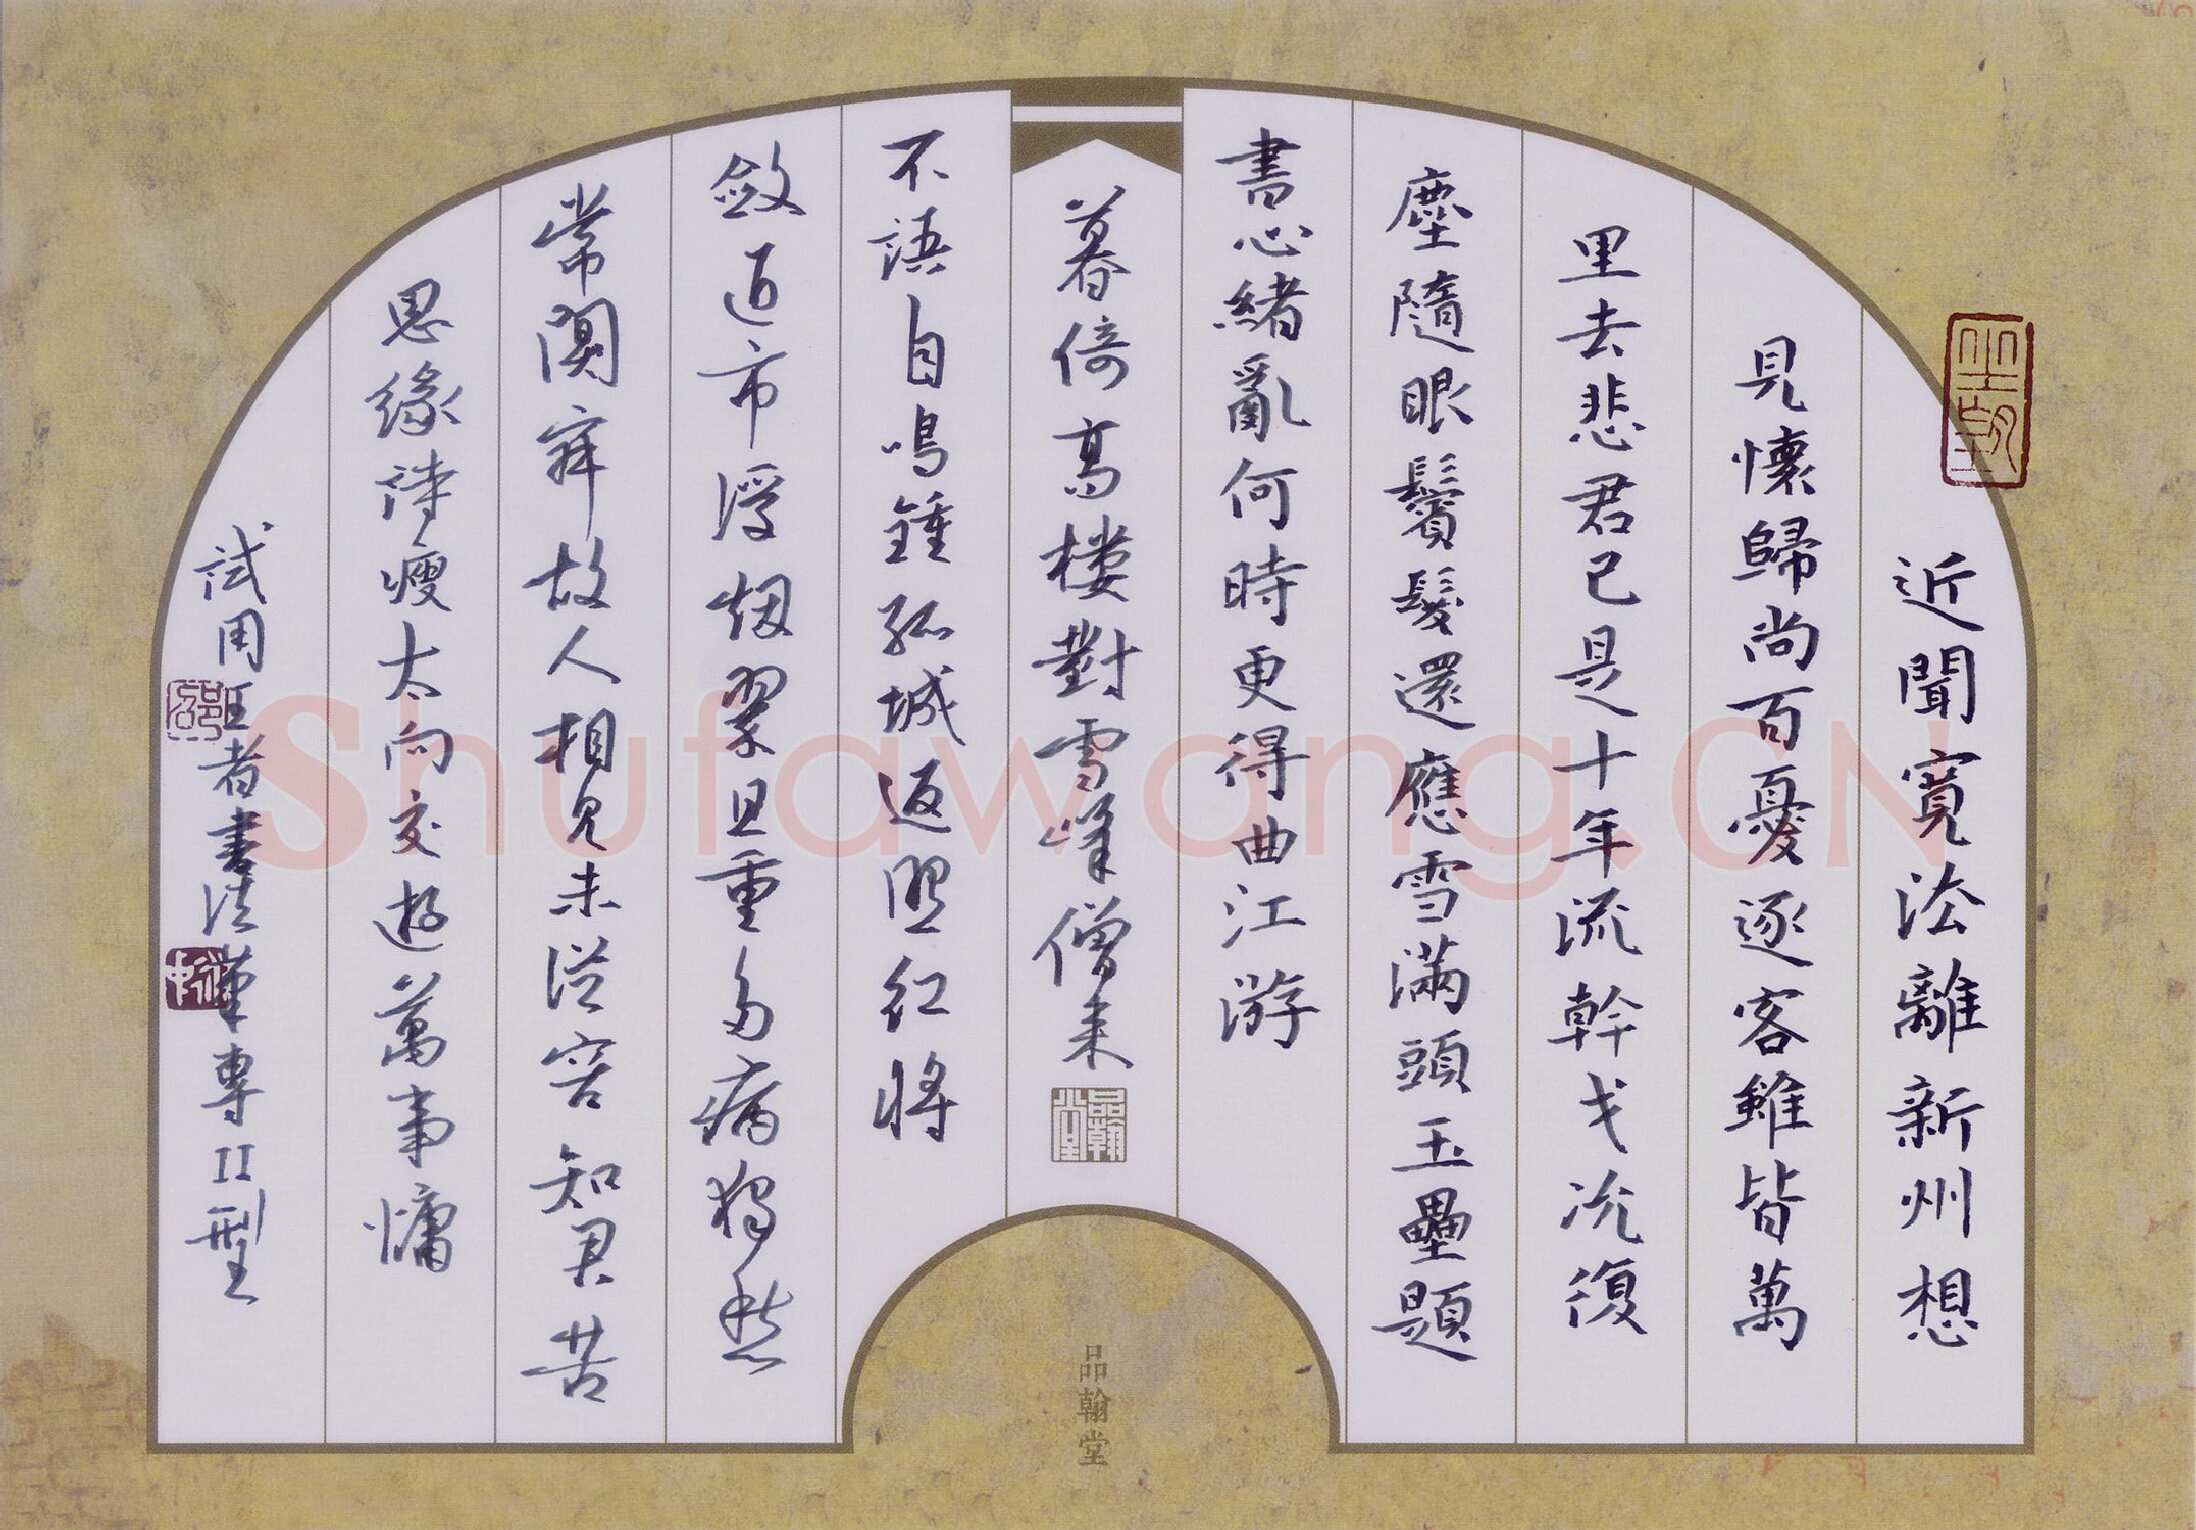 近聞寬法離新州想
見懷歸尚百憂逐客雖皆萬
里去悲君已是十年流幹戈況復
塵隨眼鬢髮還應雪滿頭玉壘題
書心緒亂何時更得曲江游
暮倚高樓對雪峰僧来
不語自鳴鍾孤城返照红將
斂近市浮烟翠且重多病獨愁
常闃寂故人相見未從容知君苦
思緣詩瘦太向交遊萬事慵
試用王者書法筆專II型
品翰堂
品翰堂
Shufawang.CN